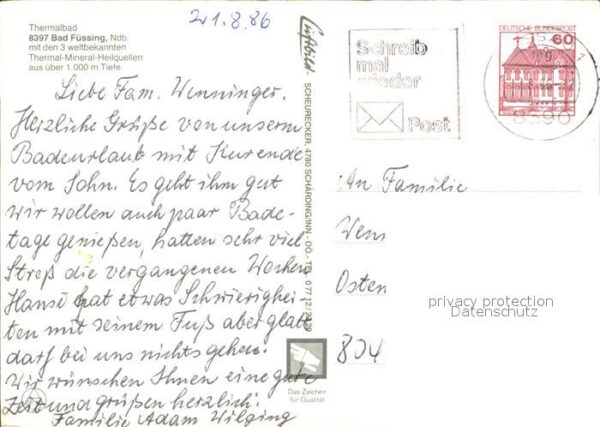 Thermalbad
8397 Bad Füssing, Ndb.
mit den 3 weltbekannten
Thermal-Mineral-Heilquellen
aus über 1.000 m Tiefe
21.8.86
Liebe Fam. Wenninger.
Herzliche Grüße von unserm
Badeurlaub mit Kurende
vom Sohn. Es geht ihm gut
wir wollen auch paar Bade-
tage genießen, hatten sehr viel
Streß die vergangenen Wochen
Hansi hat etwas Schwierighei-
ten mit seinem Fuß aber glatt
darf bei uns nichts gehen.
Wir wünschen Ihnen eine gute
Zeit und grüßen herzlich!
Familie Adam Wilging
Luftbild
SCHEURECKER, 4780 SCHÄRDING/INN
Das Zeichen
für Qualität
Schreib
mal
wieder
Post
DEUTSCHE BUNDESPOST
60
An Familie
Wens
Osten
804
privacy protection
Datenschutz